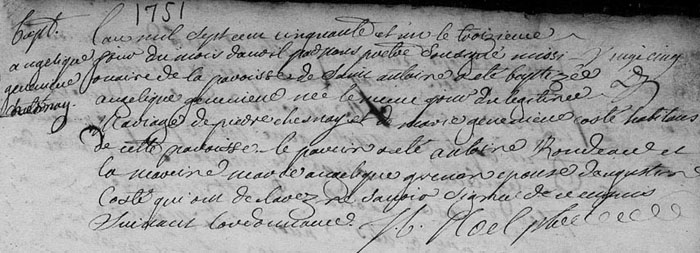 1751
Bapt. Lan mil sept cent cinquante et un le troisieme
angelique jour du mois davril par nous pretre soussigné missi
genevieve onaire de la paroisse de Saint antoine a eté baptizée
chesnay. angelique genevieve née le meme jour du legitime
Mariage de pierre chesnay et de marie genevieve costé habitans
de cette paroisse le parein a eté antoine Rondeau et
la mareine marie angelique grenon epouse daugustin
Costé qui ont declarez ne savoir signer de ce enquis
Suivant lordonnance. Noel ptre